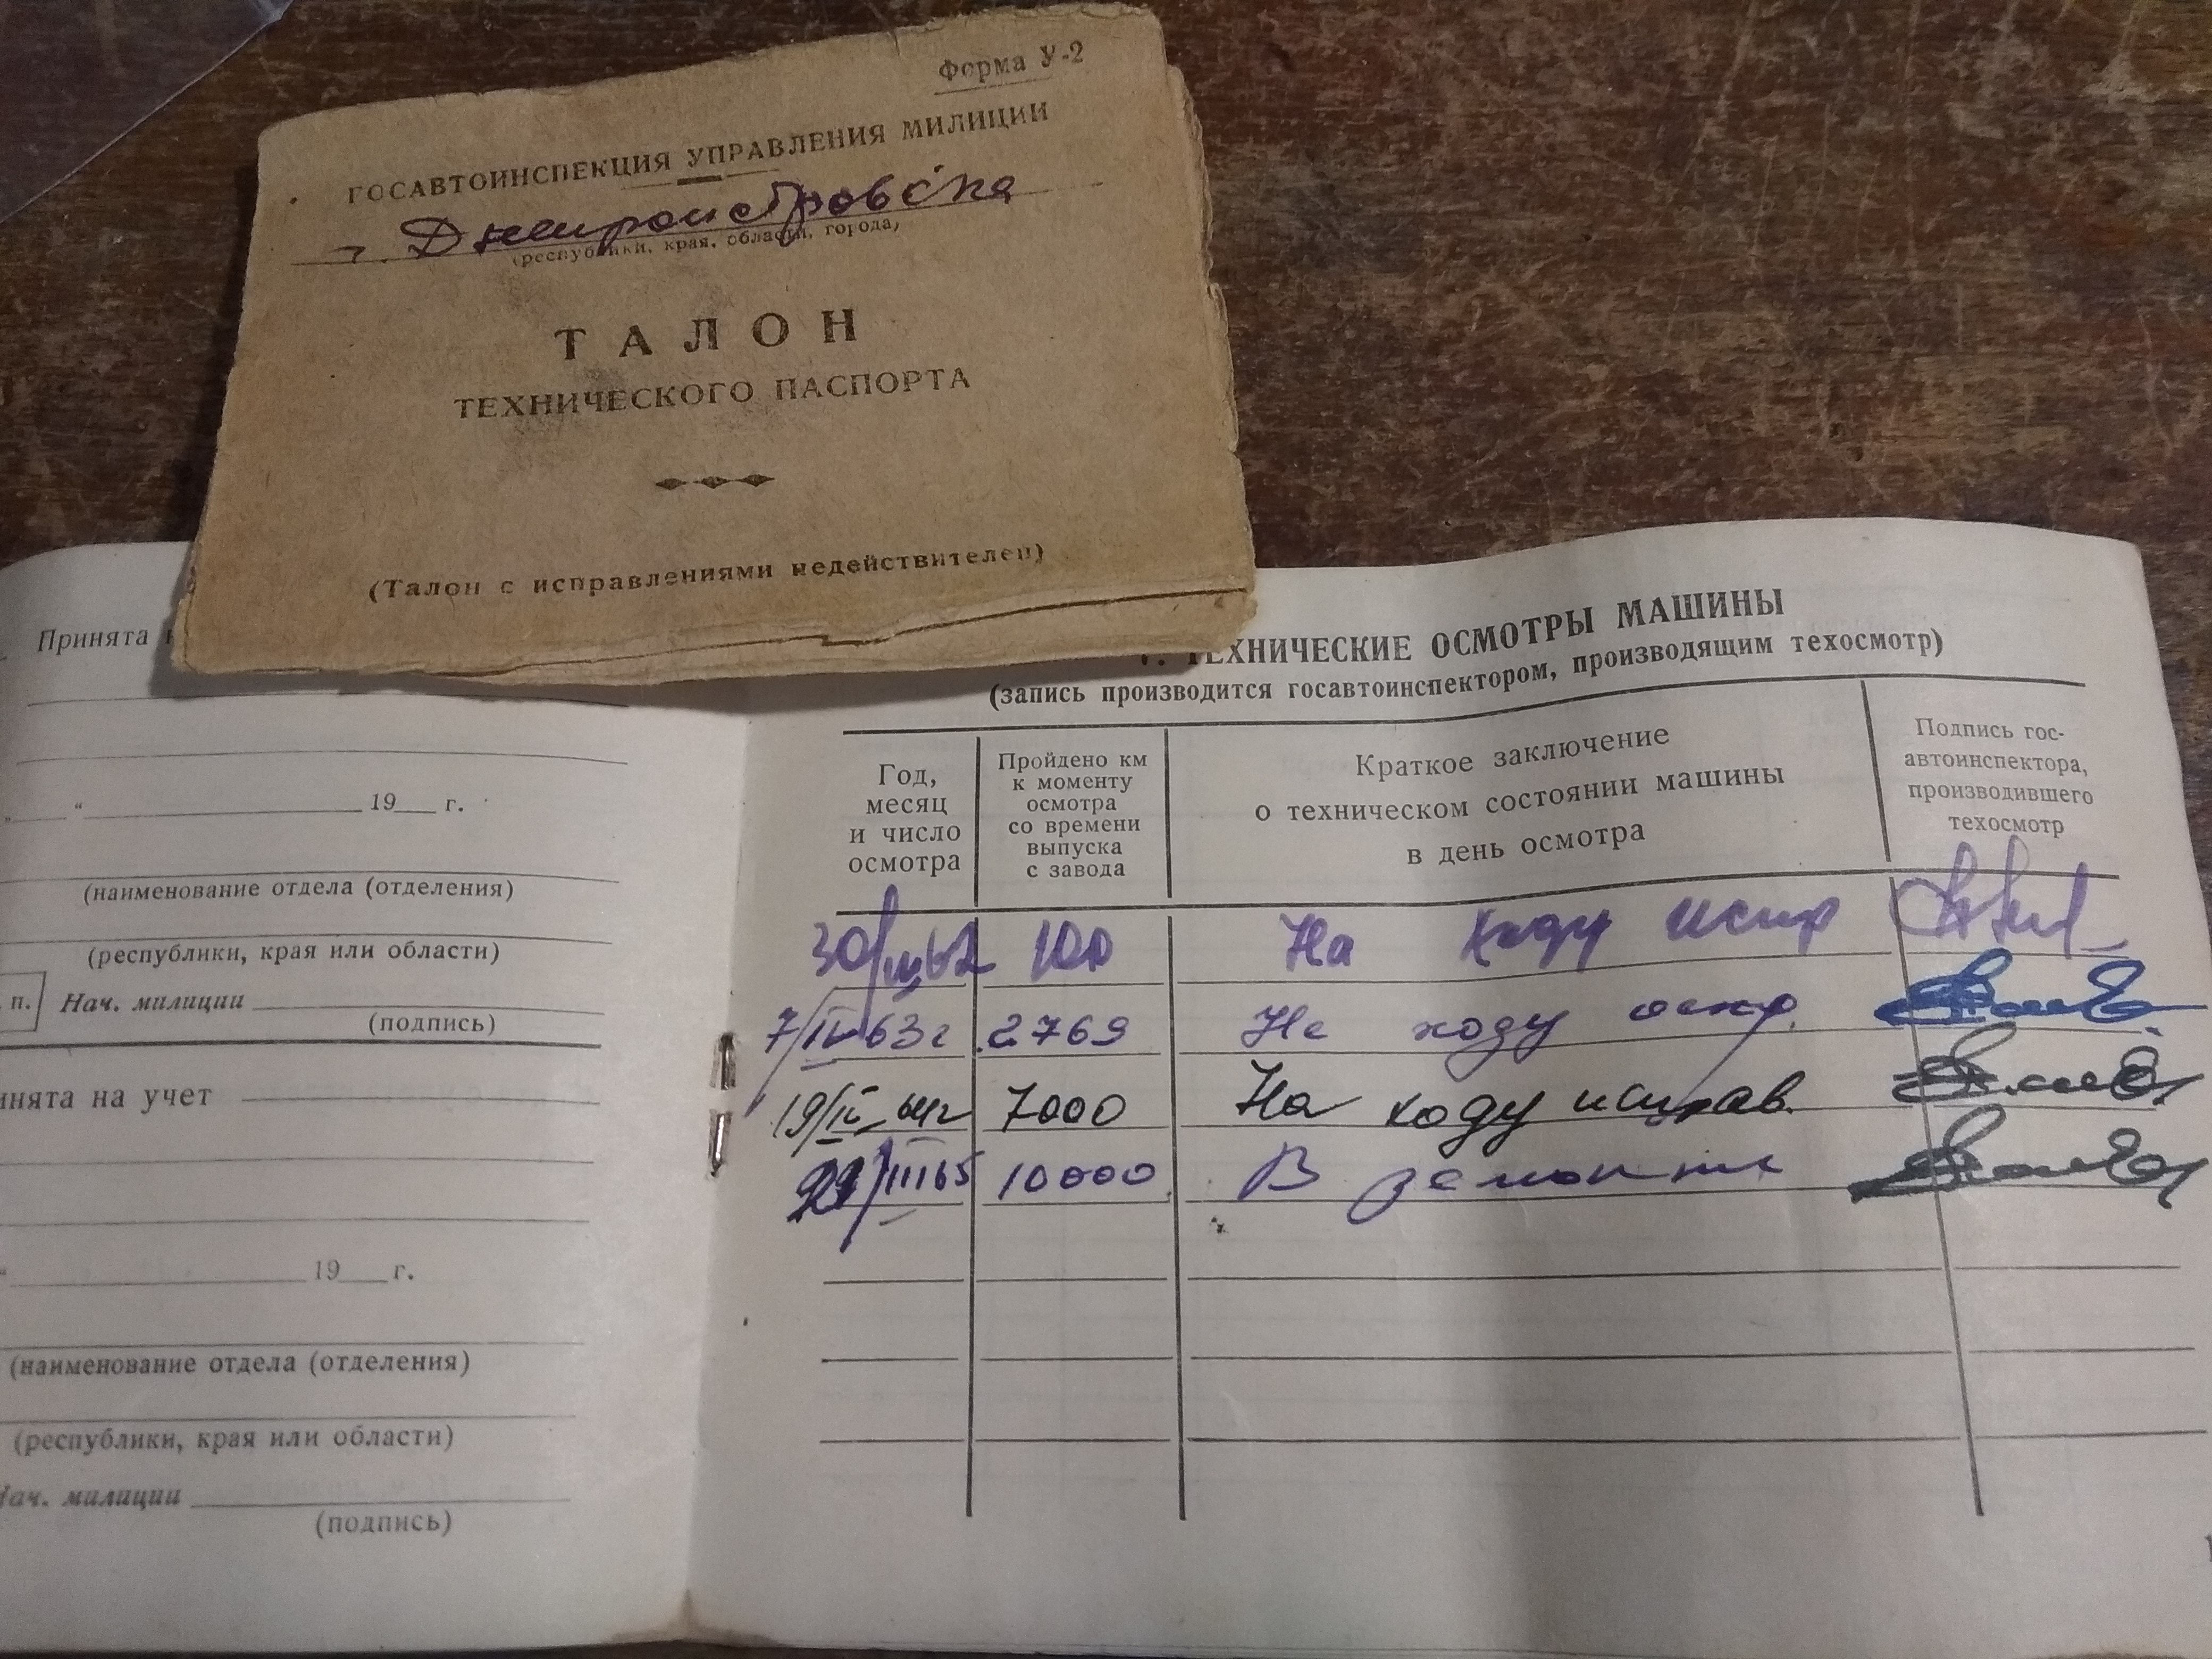 Форма У-2
ГОСАВТОИНСПЕКЦИЯ УПРАВЛЕНИЯ МИЛИЦИИ
г. Днепропетровска
(республики, края, области, города)
ТАЛОН
ТЕХНИЧЕСКОГО ПАСПОРТА
(Талон с исправлениями недействителен)
Принята
19 г.
(наименование отдела (отделения)
(республики, края или области)
п. Нач. милиции
(подпись)
инята на учет
19 г.
(наименование отдела (отделения)
(республики, края или области)
Нач. милиции
(подпись)
ТЕХНИЧЕСКИЕ ОСМОТРЫ МАШИНЫ
(запись производится госавтоинспектором, производящим техосмотр)
Год,
месяц
и число
осмотра
Пройдено км
к моменту
осмотра
со времени
выпуска
с завода
Краткое заключение
о техническом состоянии машины
в день осмотра
Подпись гос-
автоинспектора,
производившего
техосмотр
62 100 На ходу испр
7/IV 63г 2769 На ходу испр.
19/IV 64г 7000 На ходу исправ.
III 65 10000 В ремонте